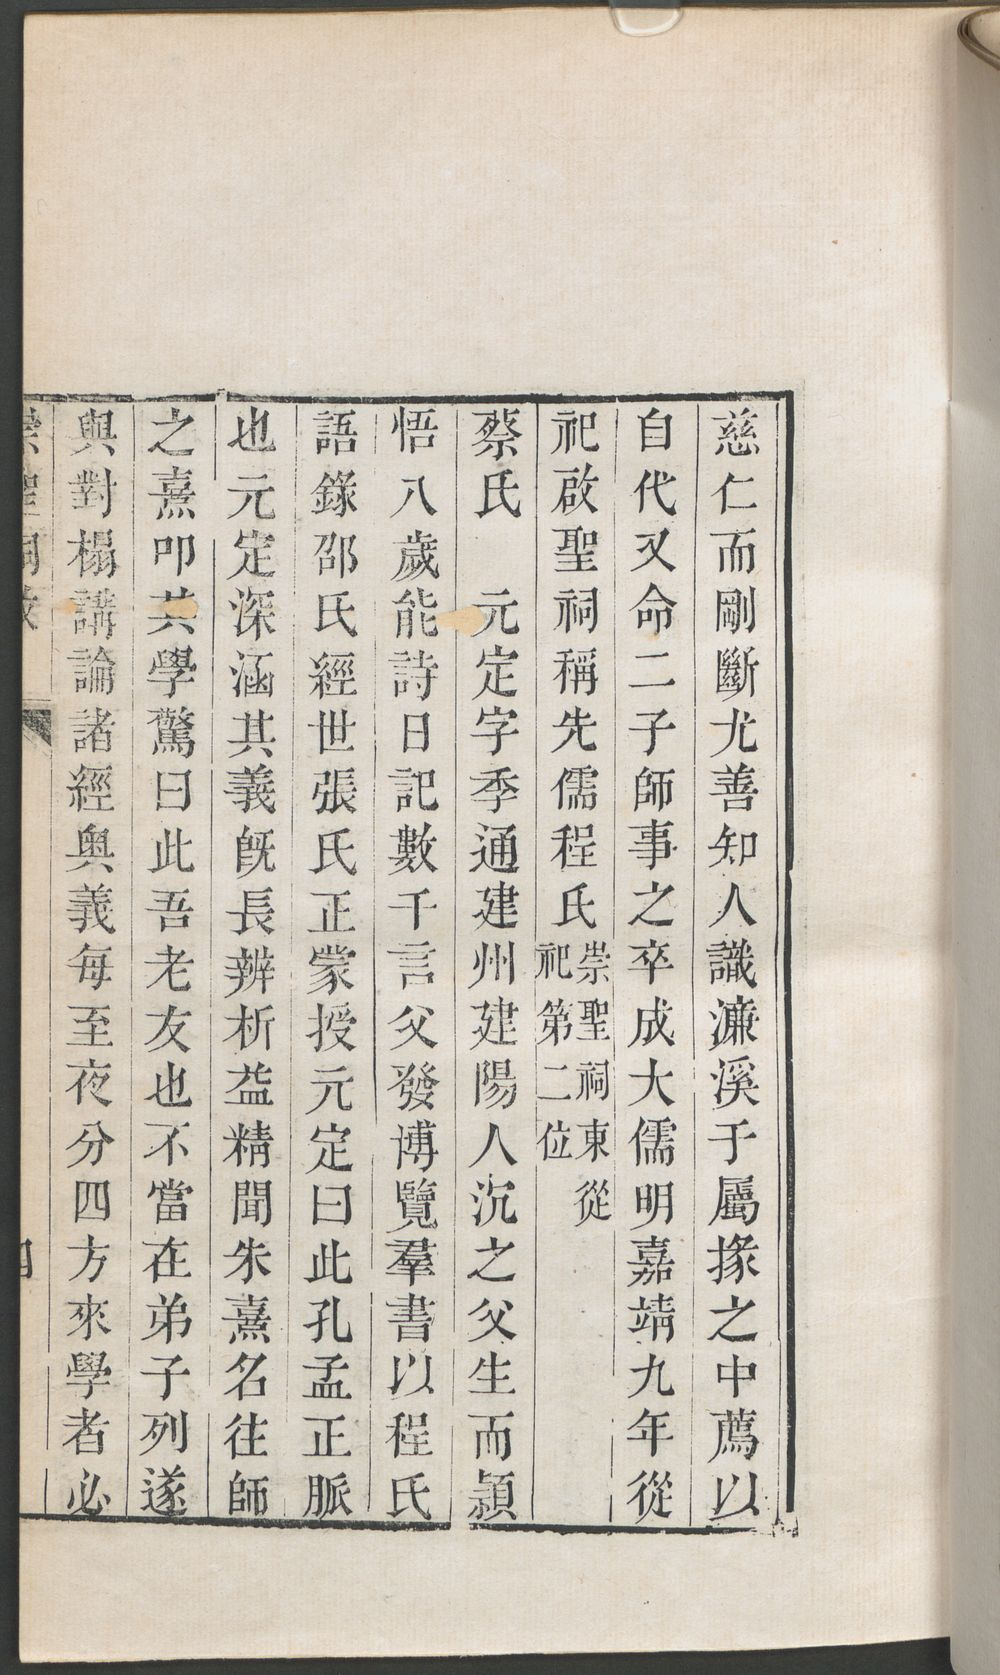 慈仁而剛斷尤善知人識濂溪于屬掾之中薦以
自代又命二子師事之卒成大儒明嘉靖九年從
祀啟聖祠稱先儒程氏崇聖祠東從祀第二位
蔡氏　元定字季通建州建陽人沉之父生而穎
悟八歲能詩日記數千言父發博覽羣書以程氏
語錄邵氏經世張氏正蒙授元定曰此孔孟正脈
也元定深涵其義既長辨析益精聞朱熹名往師
之熹叩其學驚曰此吾老友也不當在弟子列遂
與對榻講論諸經奧義每至夜分四方來學者必